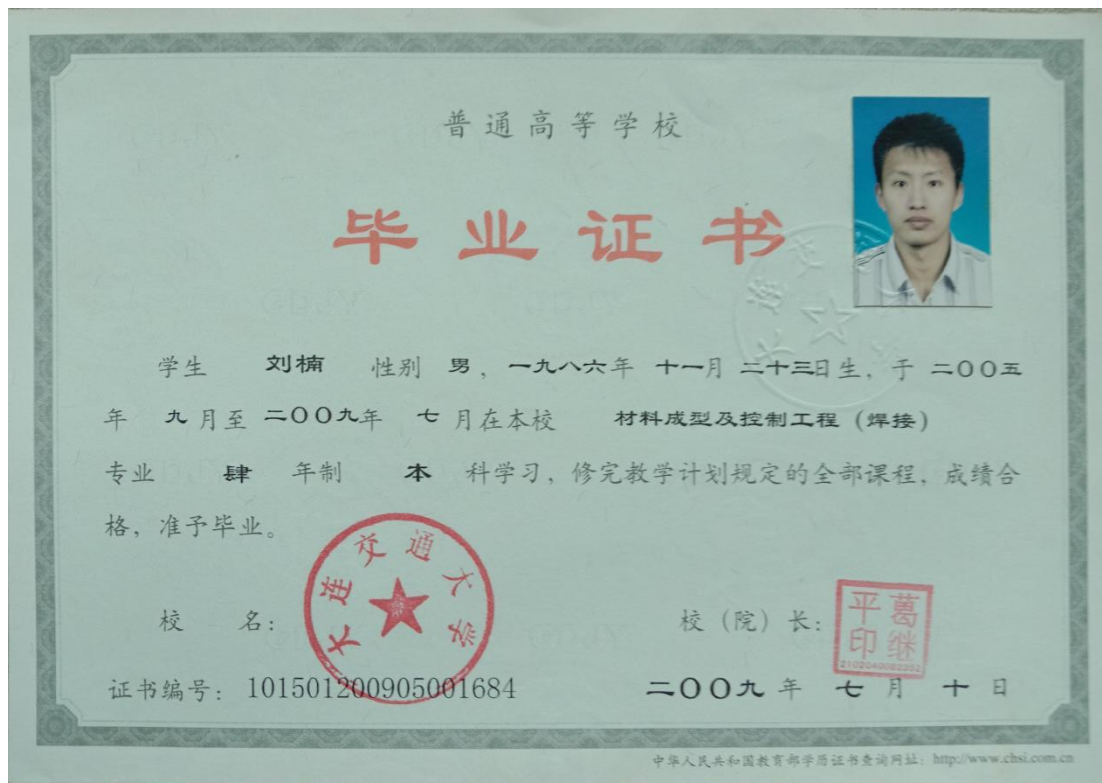 普通高等学校
毕业证书
学生 刘楠 性别 男，一九八六年 十一月 二十三日生，于 二〇〇五
年 九月至 二〇〇九年 七月在本校 材料成型及控制工程（焊接）
专业 肆 年制 本 科学习，修完教学计划规定的全部课程，成绩合
格，准予毕业。
大连交通大学
校 名：
校（院）长：
葛继平印
2102040082352
证书编号：101501200905001684
二〇〇九年 七月 十日
中华人民共和国教育部学历证书查询网址：http://www.chsi.com.cn